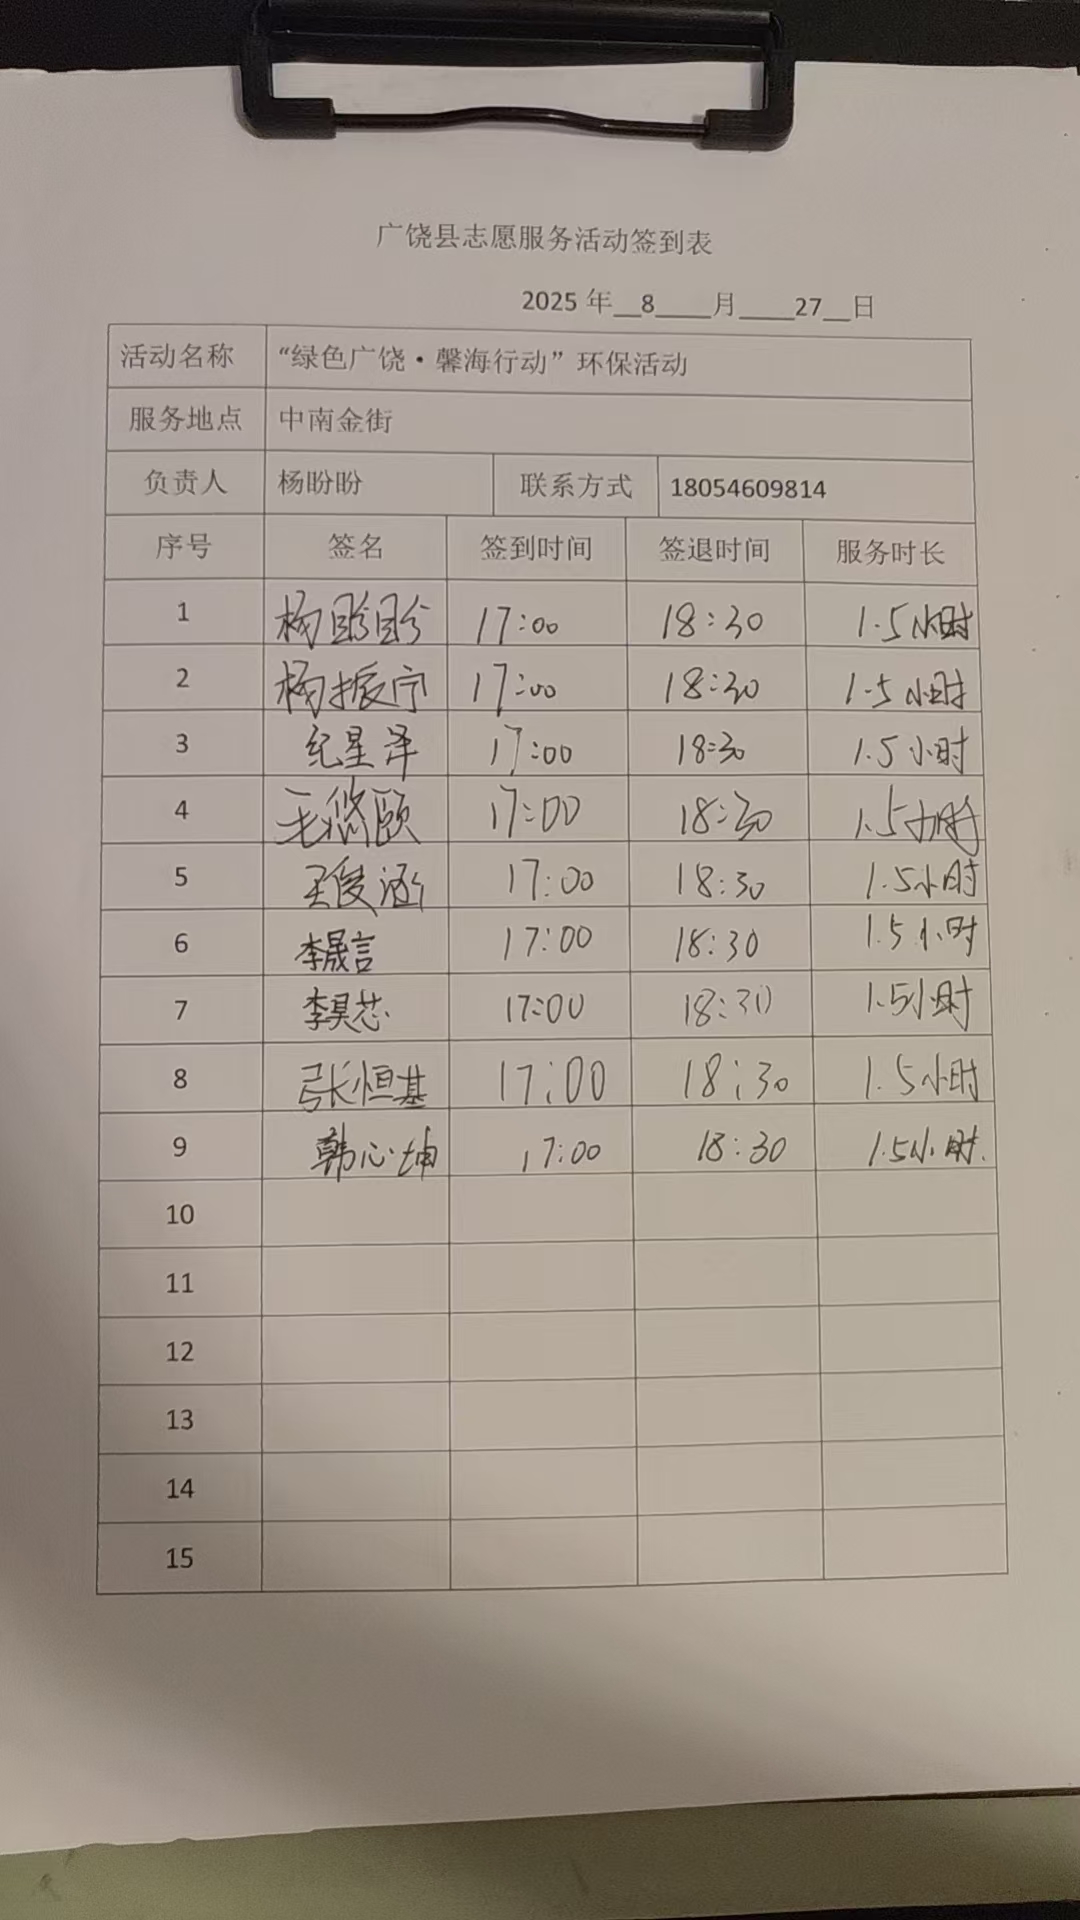 广饶县志愿服务活动签到表
2025 年__8____月____27__日
活动名称 “绿色广饶·馨海行动”环保活动
服务地点 中南金街
负责人 杨盼盼 联系方式 18054609814
序号 签名 签到时间 签退时间 服务时长
1 杨盼盼 17:00 18:30 1.5小时
2 杨振宁 17:00 18:30 1.5小时
3 纪星泽 17:00 18:30 1.5小时
4 王悠颐 17:00 18:30 1.5小时
5 王俊涵 17:00 18:30 1.5小时
6 李晟言 17:00 18:30 1.5小时
7 李昊芯 17:00 18:30 1.5小时
8 张恒基 17:00 18:30 1.5小时
9 韩心坤 17:00 18:30 1.5小时.
10
11
12
13
14
15